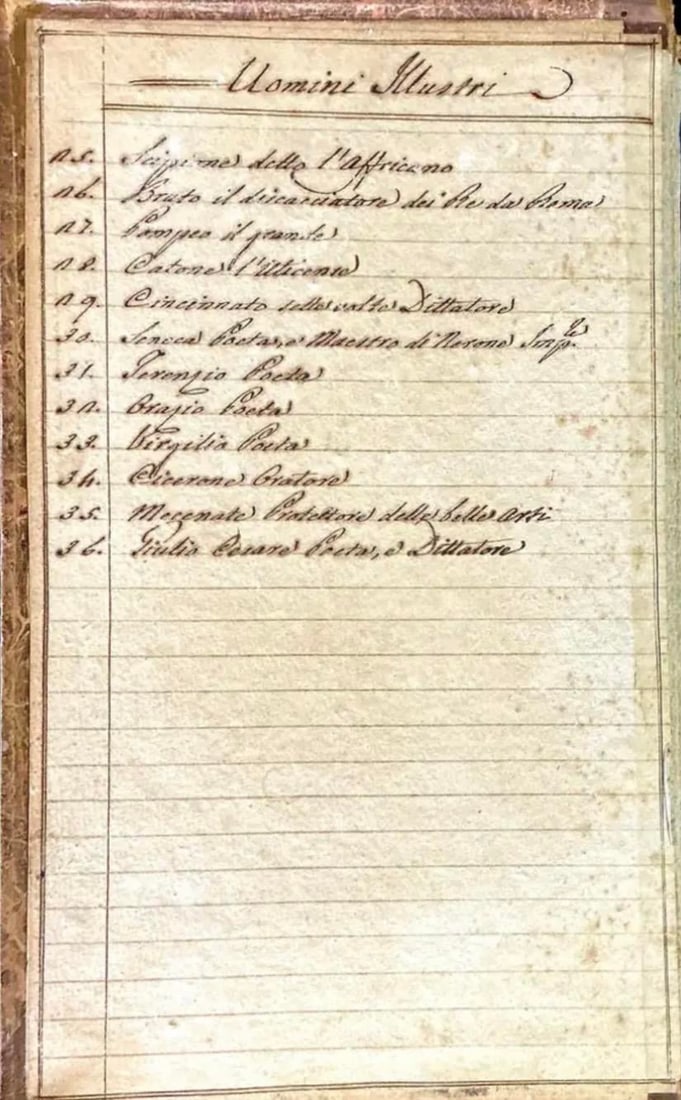 Uomini Illustri
25. Scipione detto l'Affricano
26. Bruto il discacciatore dei Re da Roma
27. Pompeo il grande
28. Catone l'Uticense
29. Cincinnato sette volte Dittatore
30. Seneca Poeta, e Maestro di Nerone Imp.re
31. Terenzio Poeta
32. Orazio Poeta
33. Virgilio Poeta
34. Cicerone Oratore
35. Mecenate Protettore delle belle Arti
36. Giulio Cesare Poeta, e Dittatore